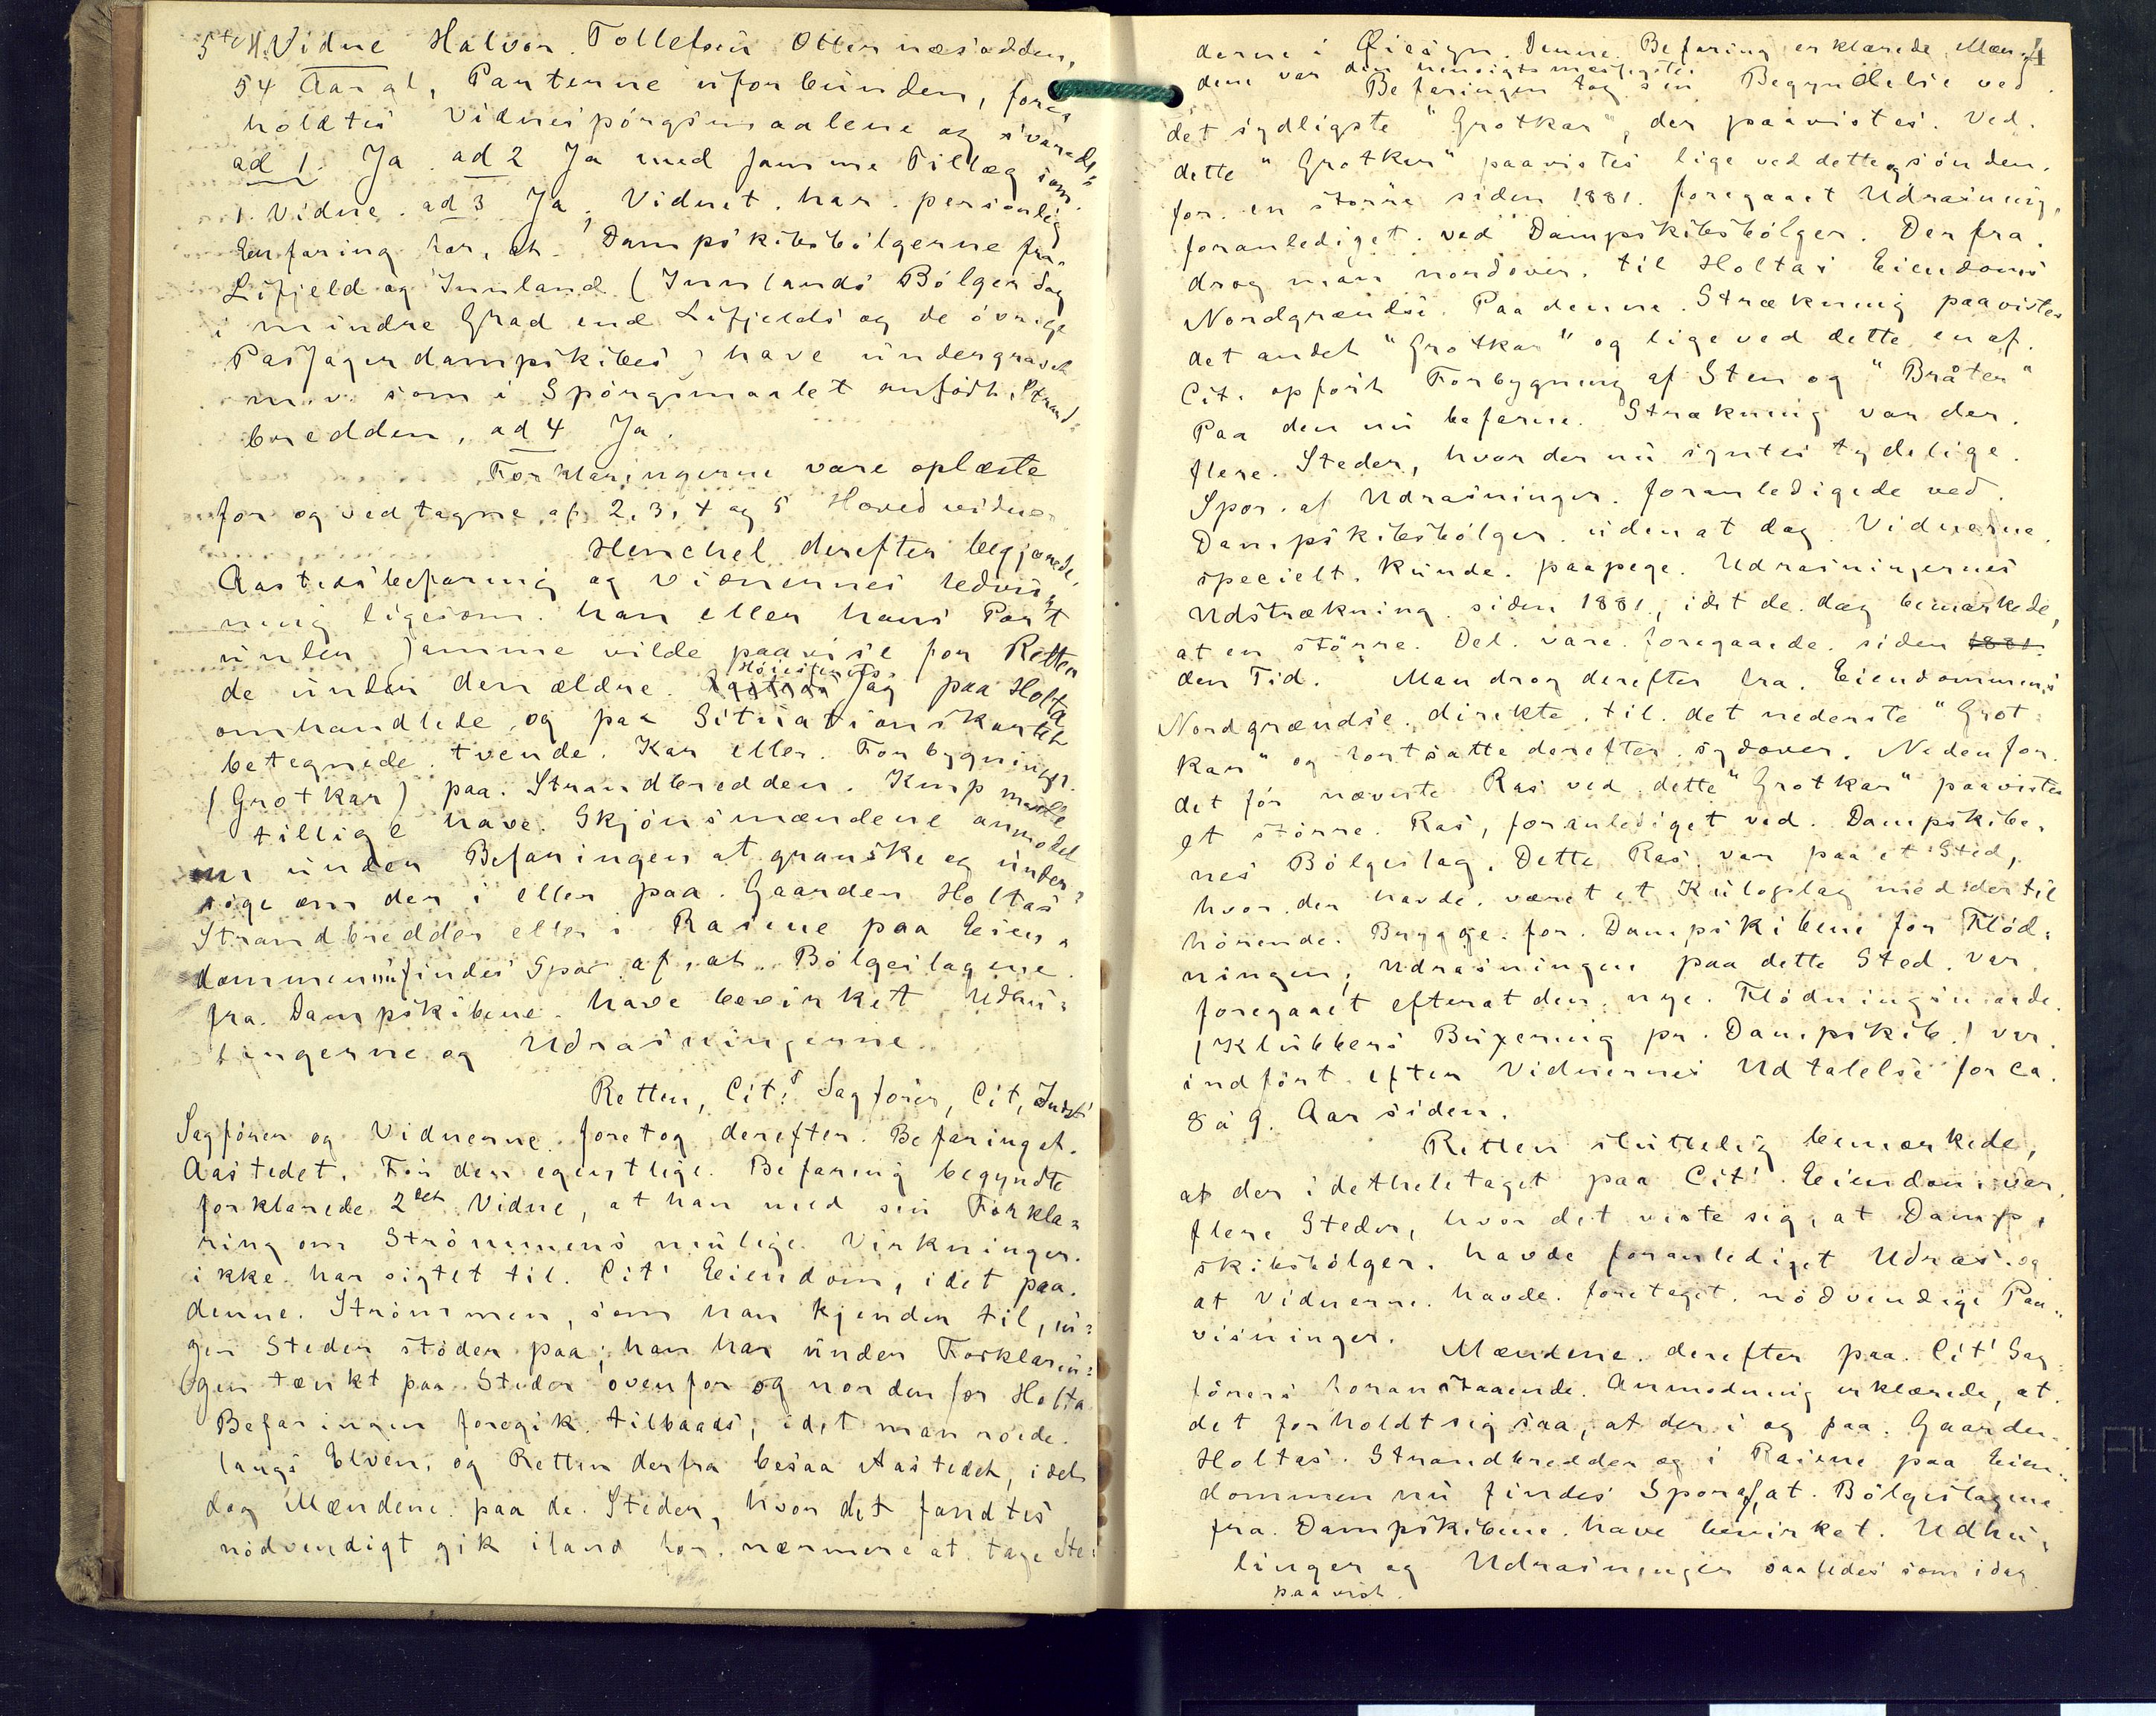 5te H. Vidne Halvor Tollefsen Otternæsodden,
54 Aar gl, Parterne uforbunden, fore=
holdtes Vidnespørgsmaalene og svarede:
ad 1. Ja. ad 2 Ja med samme Tillæg som
1. Vidne. ad 3 Ja, Vidnet har personlig
Erfaring for, at Dampskibsbølgerne fra
Lifjeld og Innland (Innlands Bølger dog
i mindre Grad end Lifjelds og de øvrige
Passagerdampskibes) have undergravet
m. v. som i Spørgsmaalet anført, Strand=
bredden, ad 4 Ja.
Forklaringerne vare oplæste
for og vedtagne af 2, 3, 4 og 5 Hovedvidner
Henchel derefter begjærede
Aastedsbefaring og Vidnernes Ledsag
ning ligesom han eller hans Part
under samme vilde paavise for Retten
de under den ældre Høiesterets Sag paa Holta
omhandlede og paa Situationskartet
betegnede tvende Kar eller Forbygninger
(Grotkar) paa Strandbredden. Kmp maatte
tillige have Skjønsmændene anmodet
om under Befaringen at granske og under=
søge om der i eller paa Gaarden Holtas
Strandbredder eller i Rasene paa Eien=
dommen nu findes Spor af, at Bølgeslagene
fra Dampskibene have bevirket Udhu=
lingerne og Udrasningerne.
Retten, Cit.s Sagfører, Cit, Indst
Sagfører og Vidnerne foretog derefter Befaring af
Aastedet. Før den egentlige Befaring begyndte
forklarede 2det Vidne, at han med sin Forkla=
ring om Strømmens mulige Virkninger
ikke har sigtet til Cit' Eiendom, idet paa
denne Strømmen, som han kjender til, in=
gen Steder støder paa; han har under Forklarin=
gen tænkt paa Steder ovenfor og nordenfor Holta
Befaringen foregik tilbaads, idet man roede
langs Elven, og Retten derfra besaa Aastedet, idet
dog Mændene paa de Steder, hvor det fandtes
nødvendigt gik iland for nærmere at tage Ste=
4
derne i Øiesyn. Denne Befaring erklærede Mæn=
dene var den hensigtsmæssigste.
Befaringen tog sin Begyndelse ved
det sydligste "Grotkar", der paavistes. Ved
dette "Grotkar" paavistes lige ved dette og sønden=
for en større siden 1881 foregaaet Udrasning,
foranlediget ved Dampskibsbølger. Derfra
drog man nordover til Holtas Eiendoms
Nordgrændse. Paa denne Strækning paavistes
det andet "Grotkar" og lige ved dette en af
Cit. opført Forbygning af Sten og "Bråter"
Paa den nu befarne Strækning var der
flere Steder, hvor der nu syntes tydelige
Spor af Udrasninger foranledigede ved
Dampskibsbølger uden at dog Vidnerne
specielt kunde paapege Udrasningernes
Udstrækning siden 1881, idet de dog bemærkede,
at en større Del vare foregaaede siden 1881
den Tid. Man drog derefter fra Eiendommens
Nordgrændse direkte til det nederste "Grot
kar" og fortsatte derefter sydover. Nedenfor
det før nævnte Ras ved dette "Grotkar" paavistes
et større Ras, foranlediget ved Dampskibe=
nes Bølgeslag. Dette Ras var paa et Sted,
hvor der havde været et Kuloplag med dertil
hørende Brygge for Dampskibene for Flød=
ningen; Udrasningen paa dette Sted var
foregaaet efterat den nye Flødningsmaade
(Klubbers Buxering pr. Dampskib) var
indført efter Vidnernes Udtalelse for ca.
8 á 9. Aar siden.
Retten sluttelig bemærkede,
at der i detheletaget paa Cit' Eiendom var
flere Steder, hvor det viste sig, at Damp=
skibsbølger havde foranlediget Udras og
at Vidnerne havde foretaget nødvendige Paa=
visninger.
Mændene derefter paa Cit' Sag=
førers foranstaaende Anmodning erklærede, at
det forholdt sig saa, at der i og paa Gaarden
Holtas Strandbredder og i Rasene paa Eien=
dommen nu findes Spor af, at Bølgeslagene
fra Dampskibene have bevirket Udhu=
linger og Udrasninger saaledes som idag
paavist.